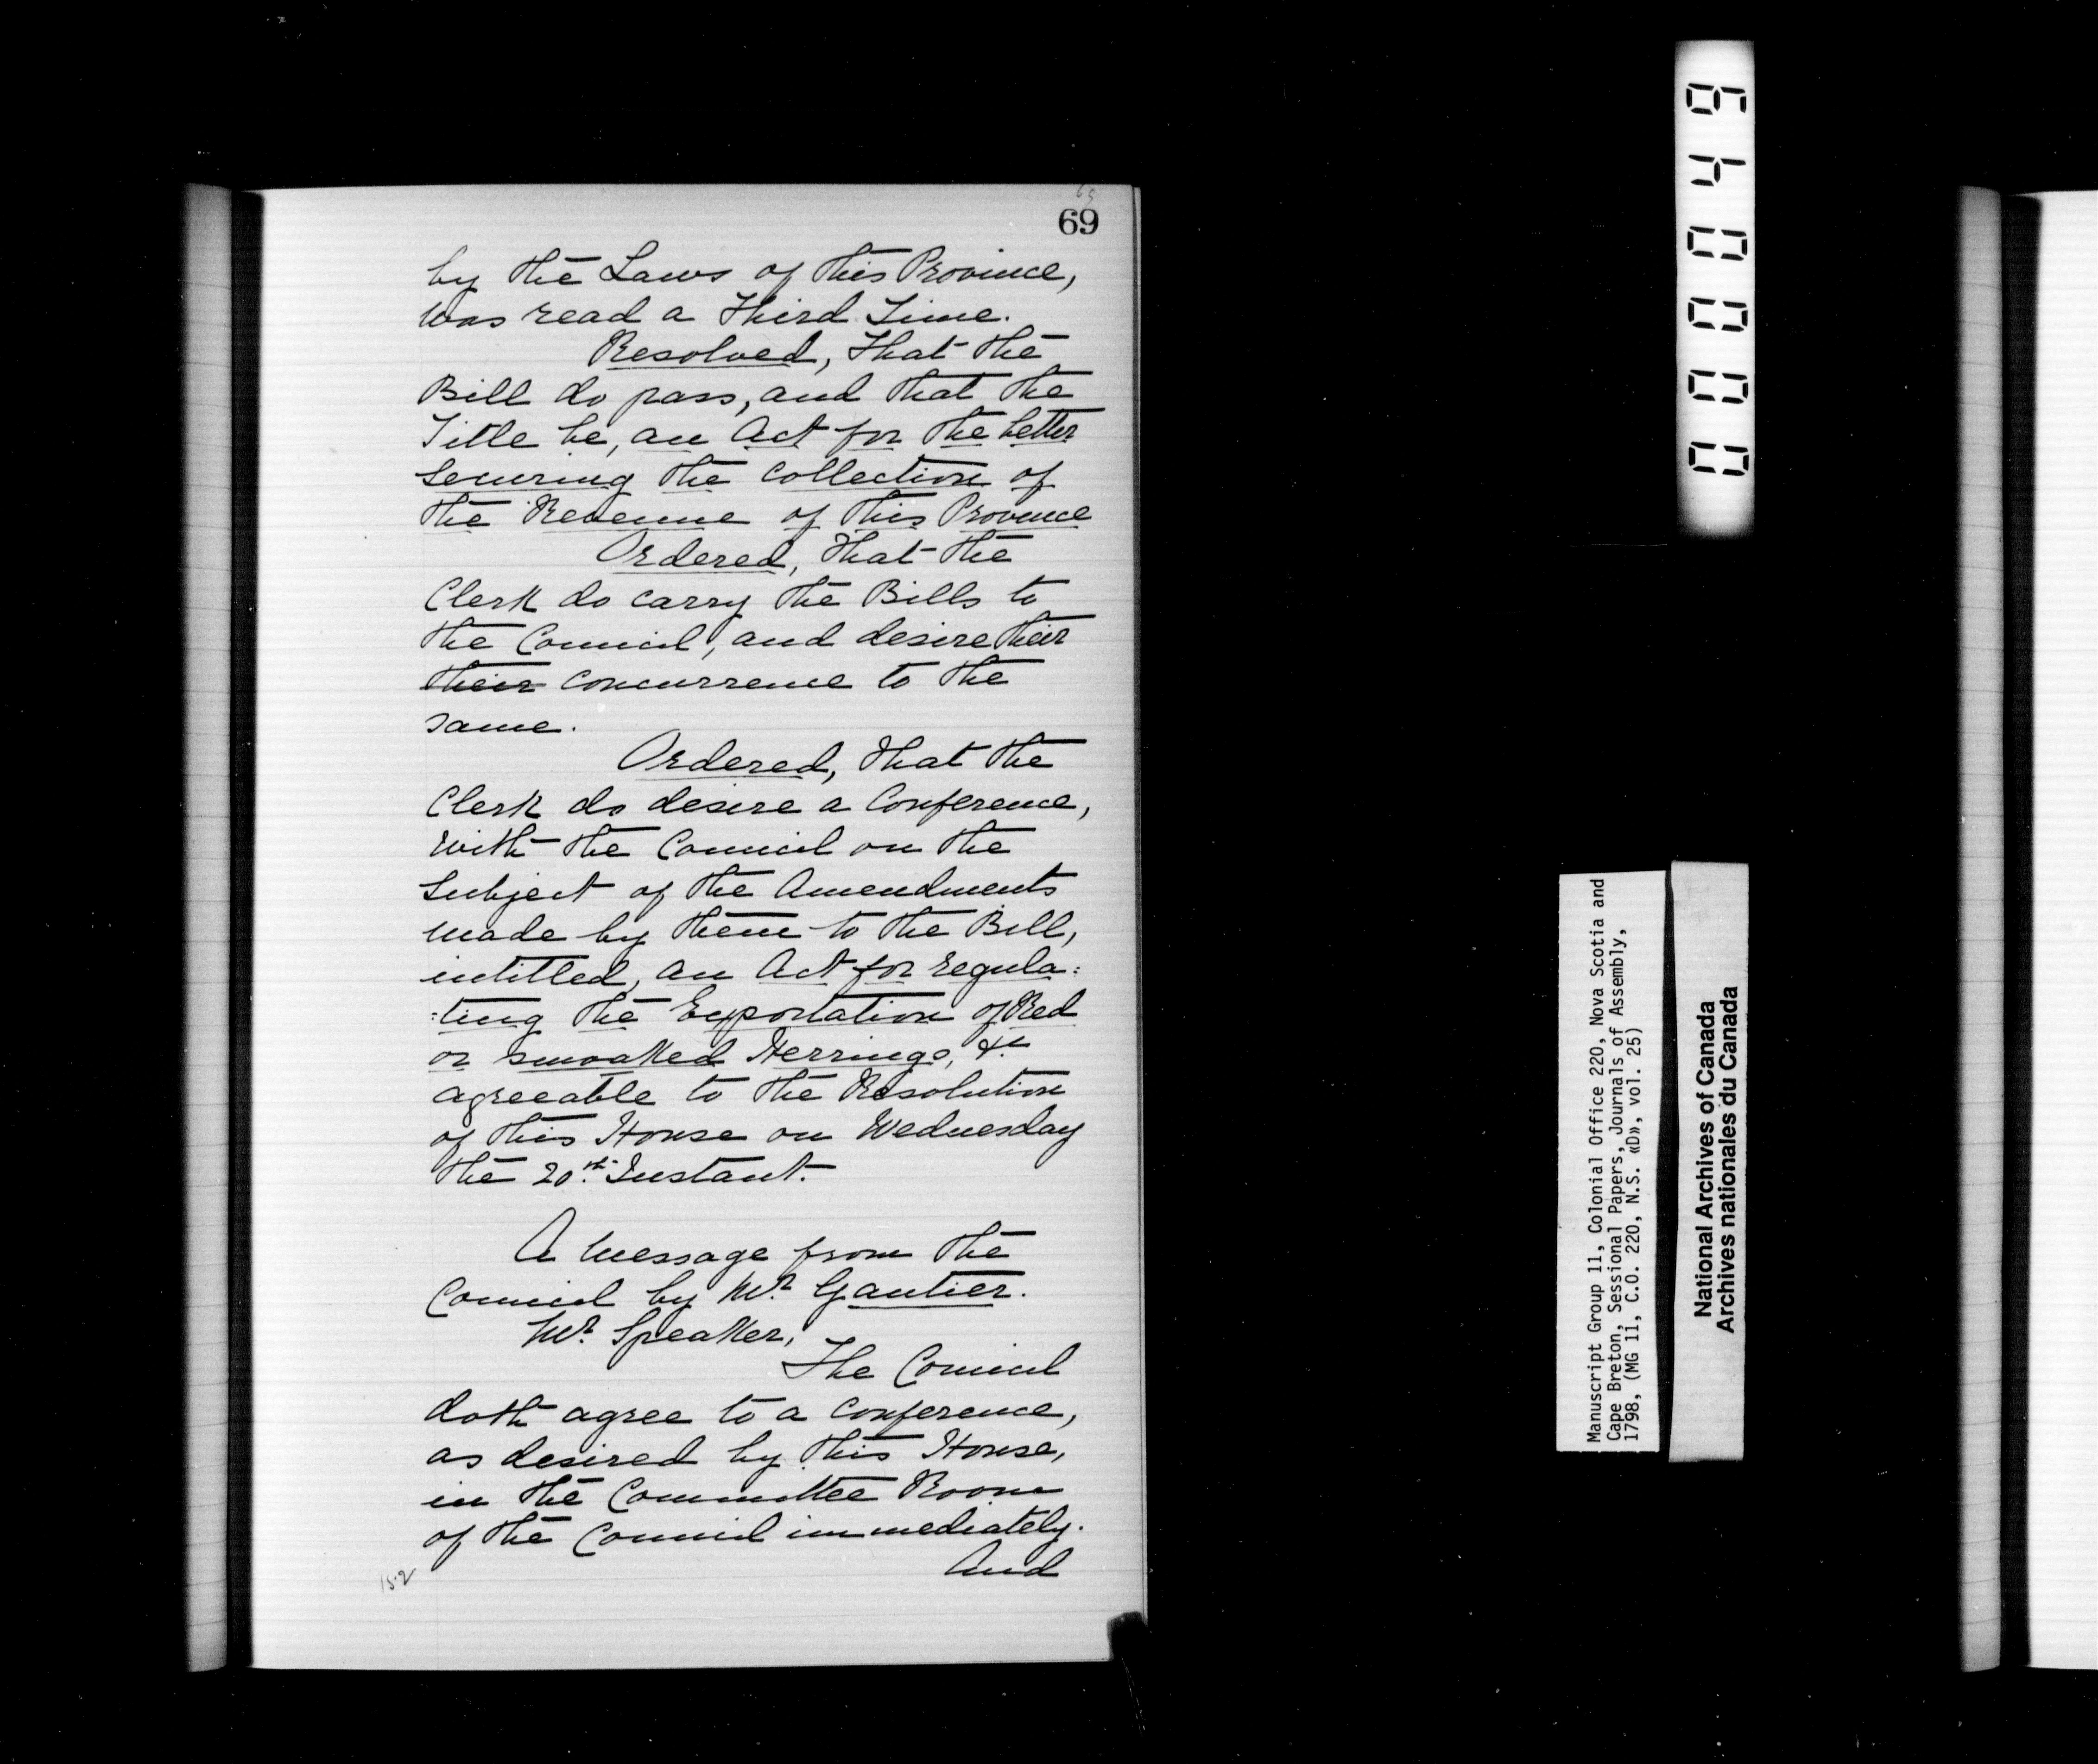 69
by the Laws of this Province,
was read a Third Time.
Resolved, That the
Bill do pass, and that the
Title be, an Act for the better
Securing the Collection of
the Revenue of this Province
Ordered, That the
Clerk do carry the Bills to
the Council, and desire their
their concurrence to the
same.
Ordered, that the
Clerk do desire a Conference,
with the Council on the
Subject of the Amendments
made by them to the Bill,
intitled, an Act for regula:
:ting the Exportation of Red
or smoaked Herrings, &c
agreeable to the Resolution
of this House on Wednesday
the 20th Instant.
A Message from the
Council by Mr. Gautier.
Mr. Speaker,
The Council
doth agree to a conference,
as desired by this House,
in the Committee Room
of the Council immediately.
And
152
000049
Manuscript Group 11, Colonial Office 220, Nova Scotia and
Cape Breton, Sessional Papers, Journals of Assembly,
1798, (MG 11, C.O. 220, N.S. «D», vol. 25)
National Archives of Canada
Archives nationales du Canada